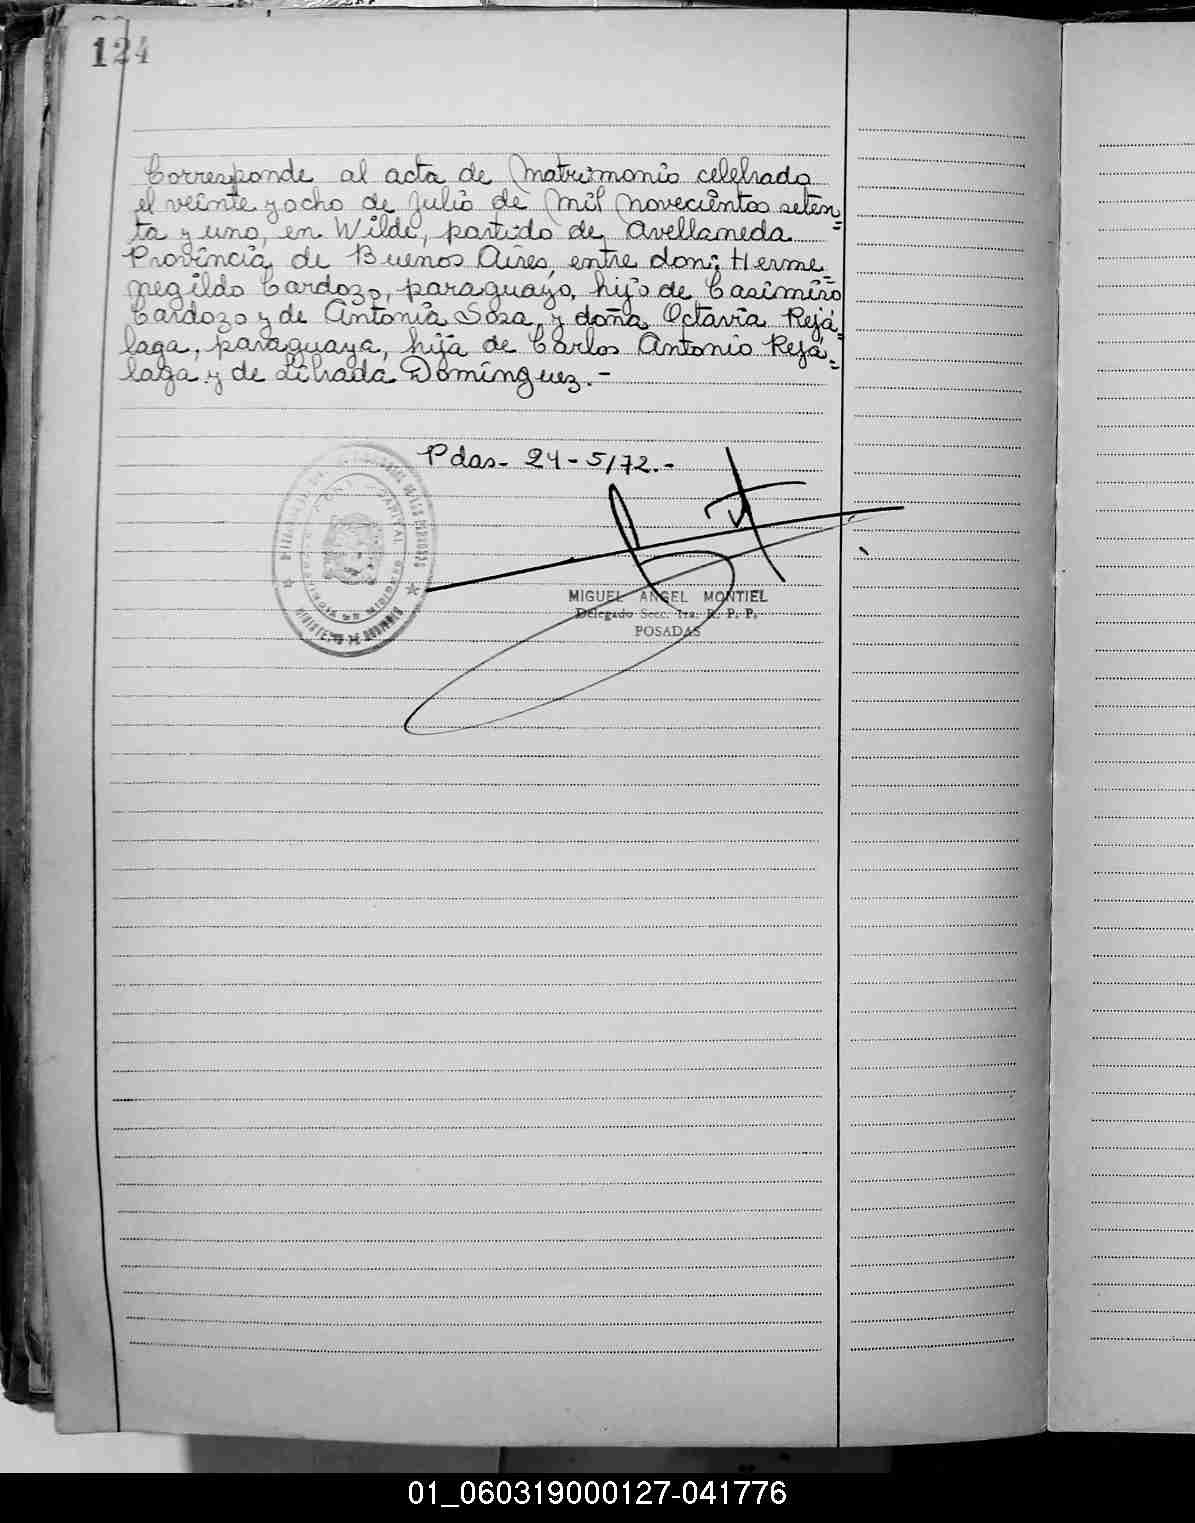 124
Corresponde al acta de Matrimonio celebrado
el veinte y ocho de Julio de Mil Novecientos seten=
ta y uno, en Wilde, partido de Avellaneda
Provincia de Buenos Aires, entre don: Herme=
negildo Cardozo, paraguayo, hijo de Casimiro
Cardozo y de Antonia Sosa, y doña Octavia Rejá=
laga, paraguaya, hija de Carlos Antonio Rejá=
laga y de Librada Domínguez.-
Pdas- 24-5/72.-
MIGUEL ANGEL MONTIEL
Delegado Secc. 1ra. R. P. P.
POSADAS
01_060319000127-041776